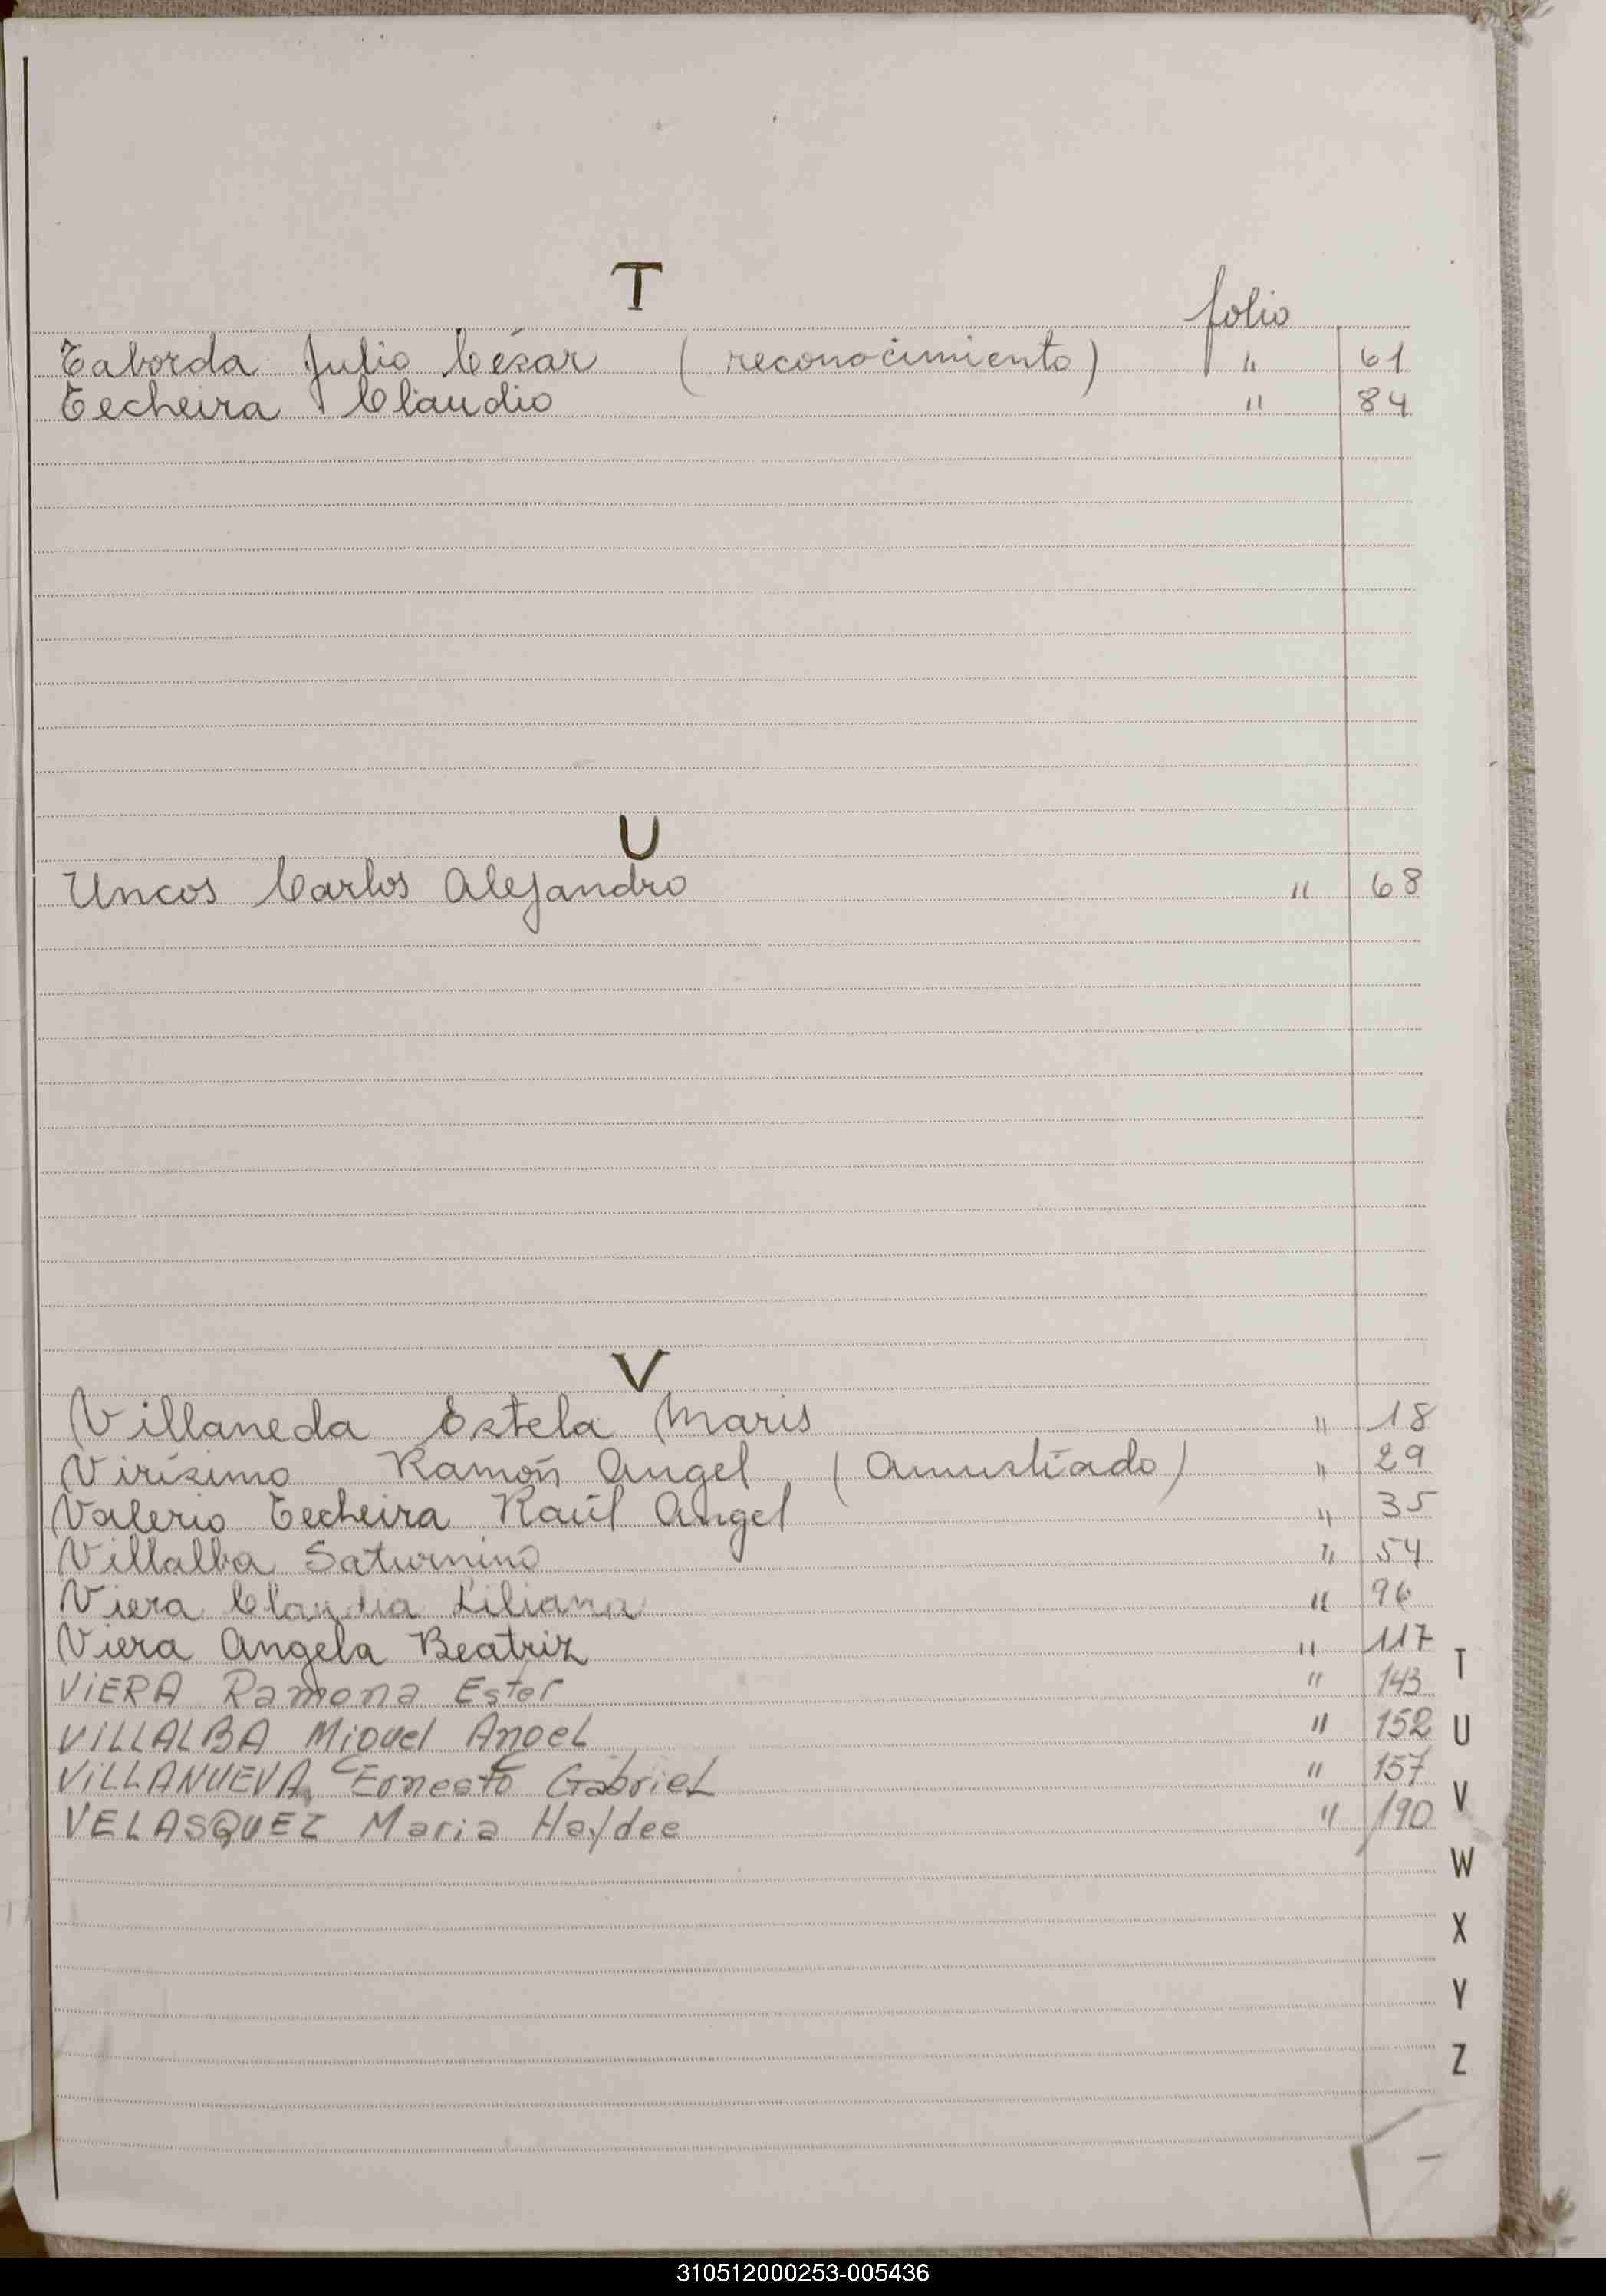 T
folio
Taborda Julio César (reconocimiento) " 61
Techeira Claudio " 84
U
Uncos Carlos Alejandro " 68
V
Villaneda Estela Maris " 18
Virísimo Ramón Angel (Amnistiado) " 29
Valerio Techeira Raúl Angel " 35
Villalba Saturnino " 54
Viera Claudia Liliana " 96
Viera Angela Beatriz " 117
VIERA Ramona Ester " 143
VILLALBA Miguel Angel " 152
VILLANUEVA Ernesto Gabriel " 157
VELASQUEZ Maria Haydee " 190
T
U
V
W
X
Y
Z
310512000253-005436